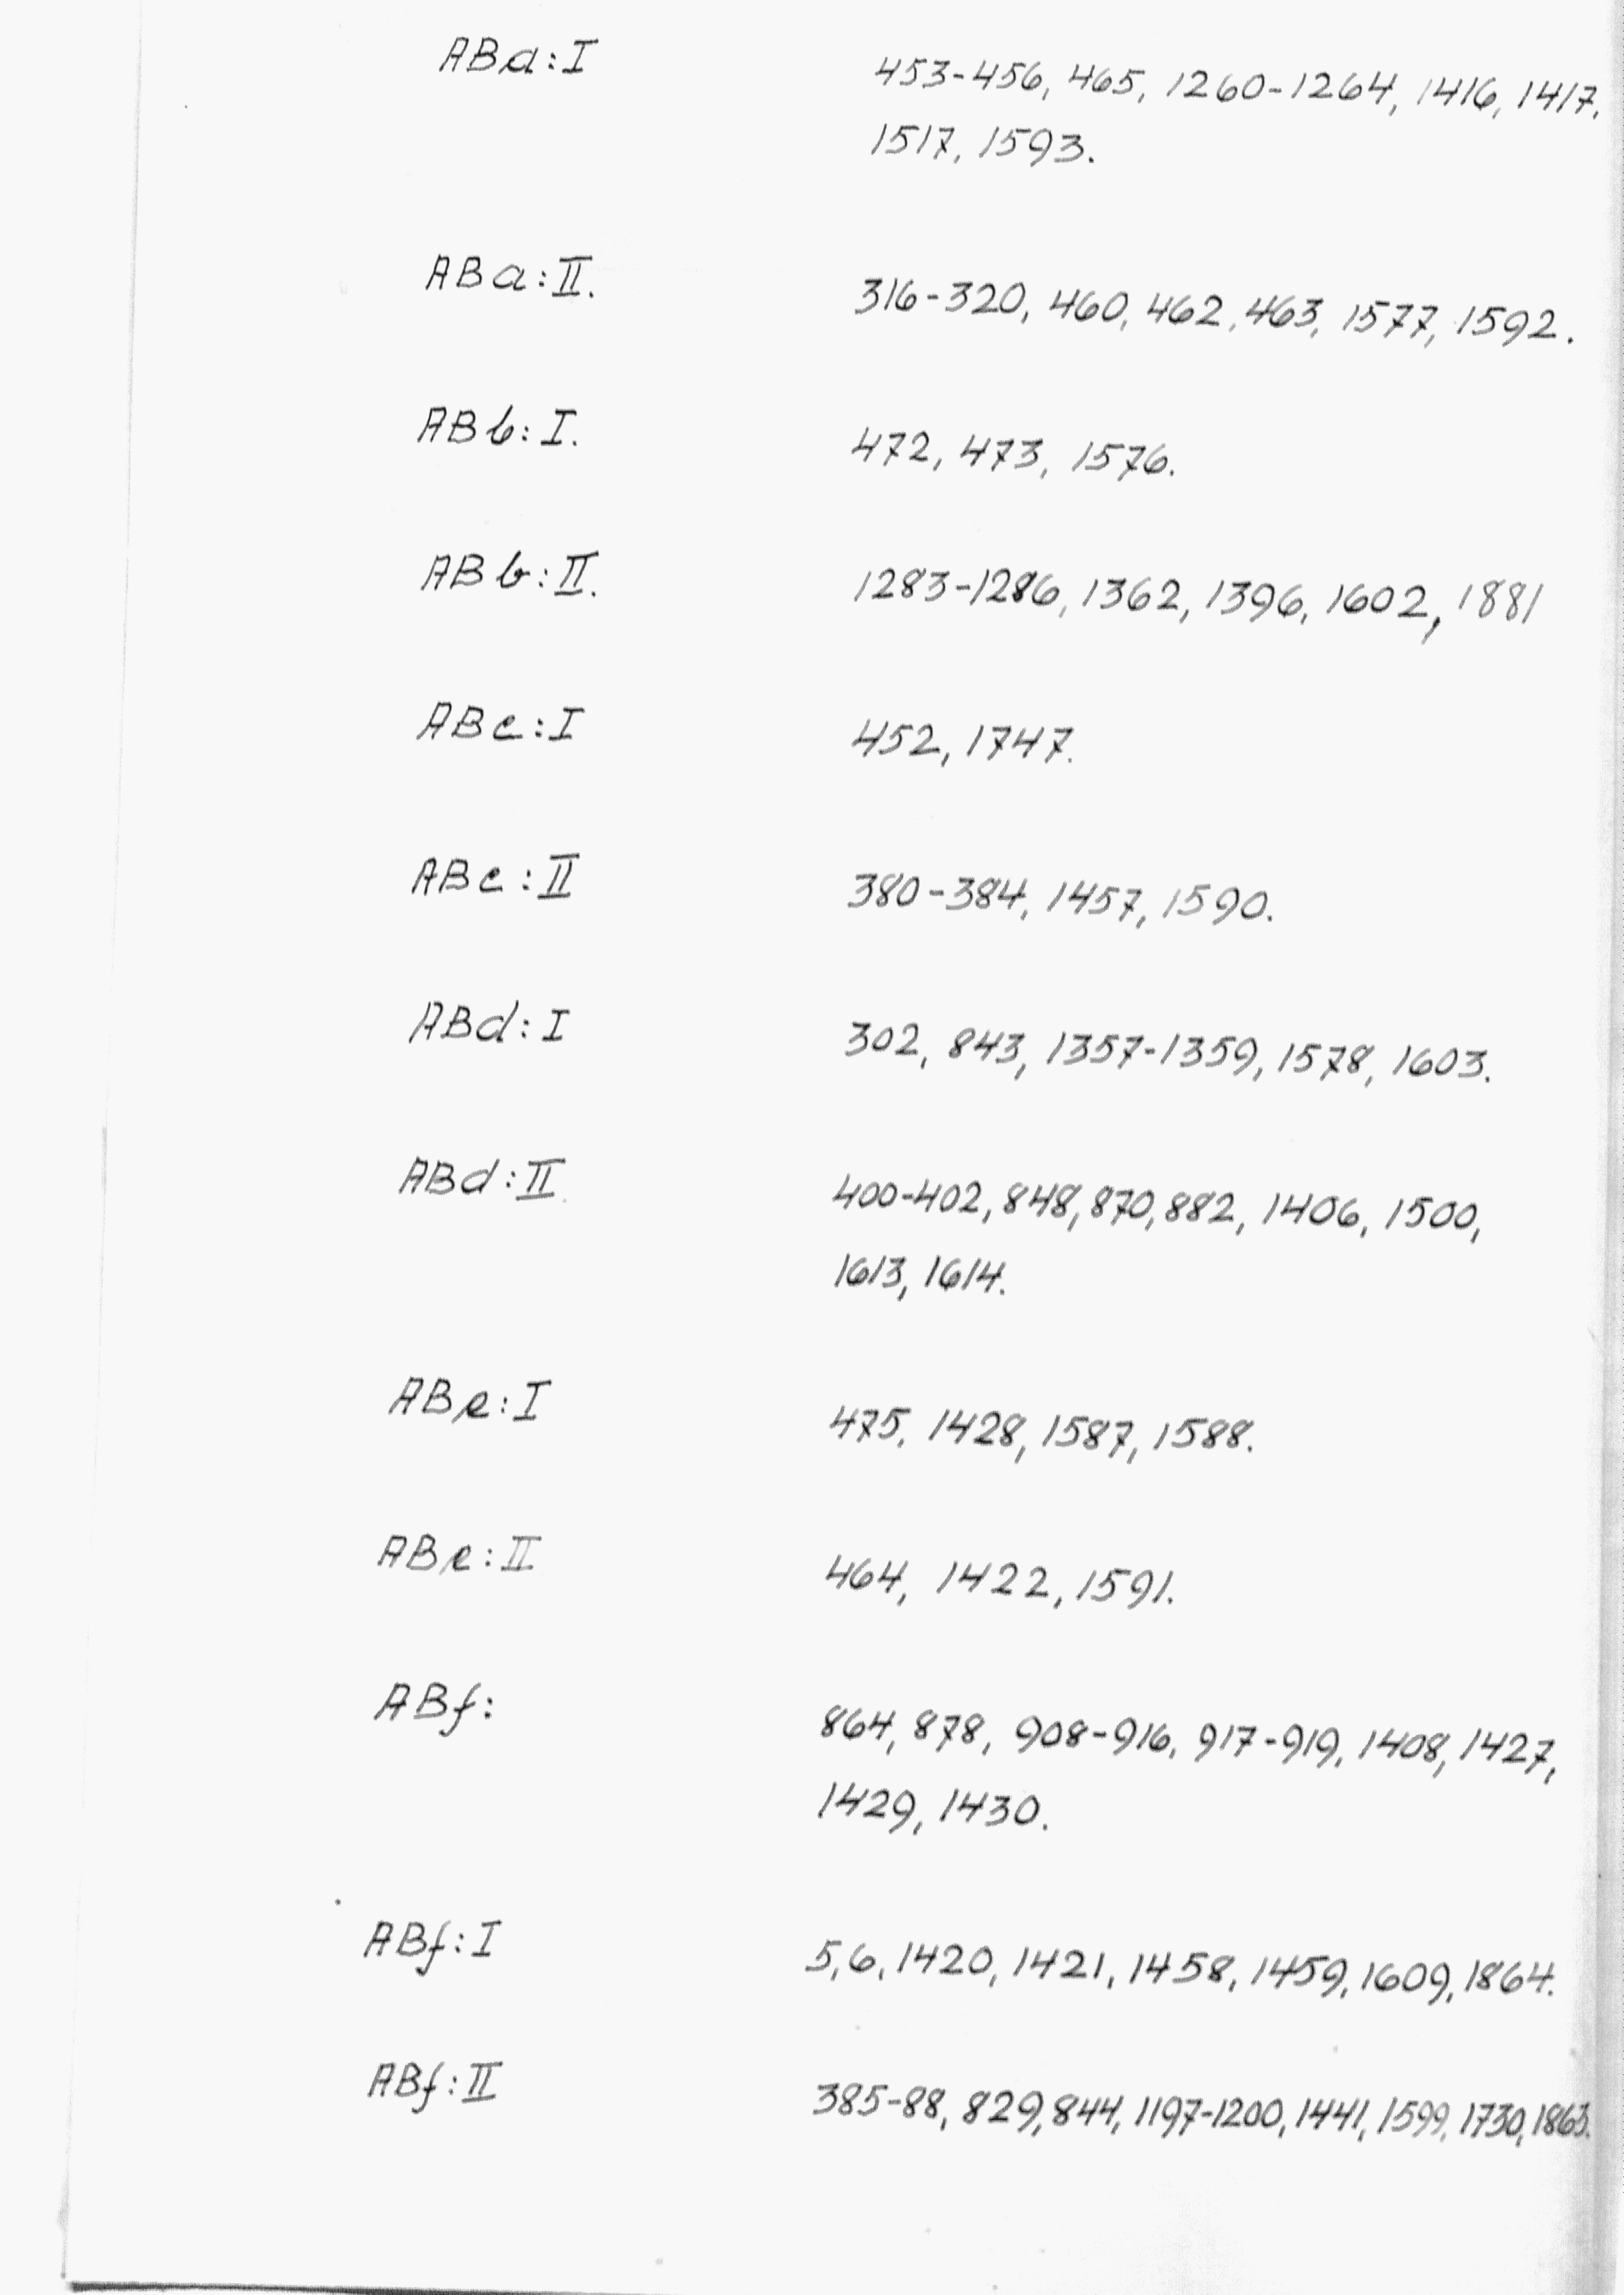 ABa:I 453-456, 465, 1260-1264, 1416, 1417,
1517, 1593.
ABa:II. 316-320, 460, 462, 463, 1577, 1592.
ABb:I. 472, 473, 1576.
ABb:II. 1283-1286, 1362, 1396, 1602, 1881
ABc:I 452, 1747.
ABc:II 380-384, 1457, 1590.
ABd:I 302, 843, 1357-1359, 1578, 1603.
ABd:II. 400-402, 848, 870, 882, 1406, 1500,
1613, 1614.
ABe:I 475, 1428, 1587, 1588.
ABe:II 464, 1422, 1591.
ABf: 864, 878, 908-916, 917-919, 1408, 1427,
1429, 1430.
ABf:I 5, 6, 1420, 1421, 1458, 1459, 1609, 1864.
ABf:II 385-88, 829, 844, 1197-1200, 1441, 1599, 1730, 1863.